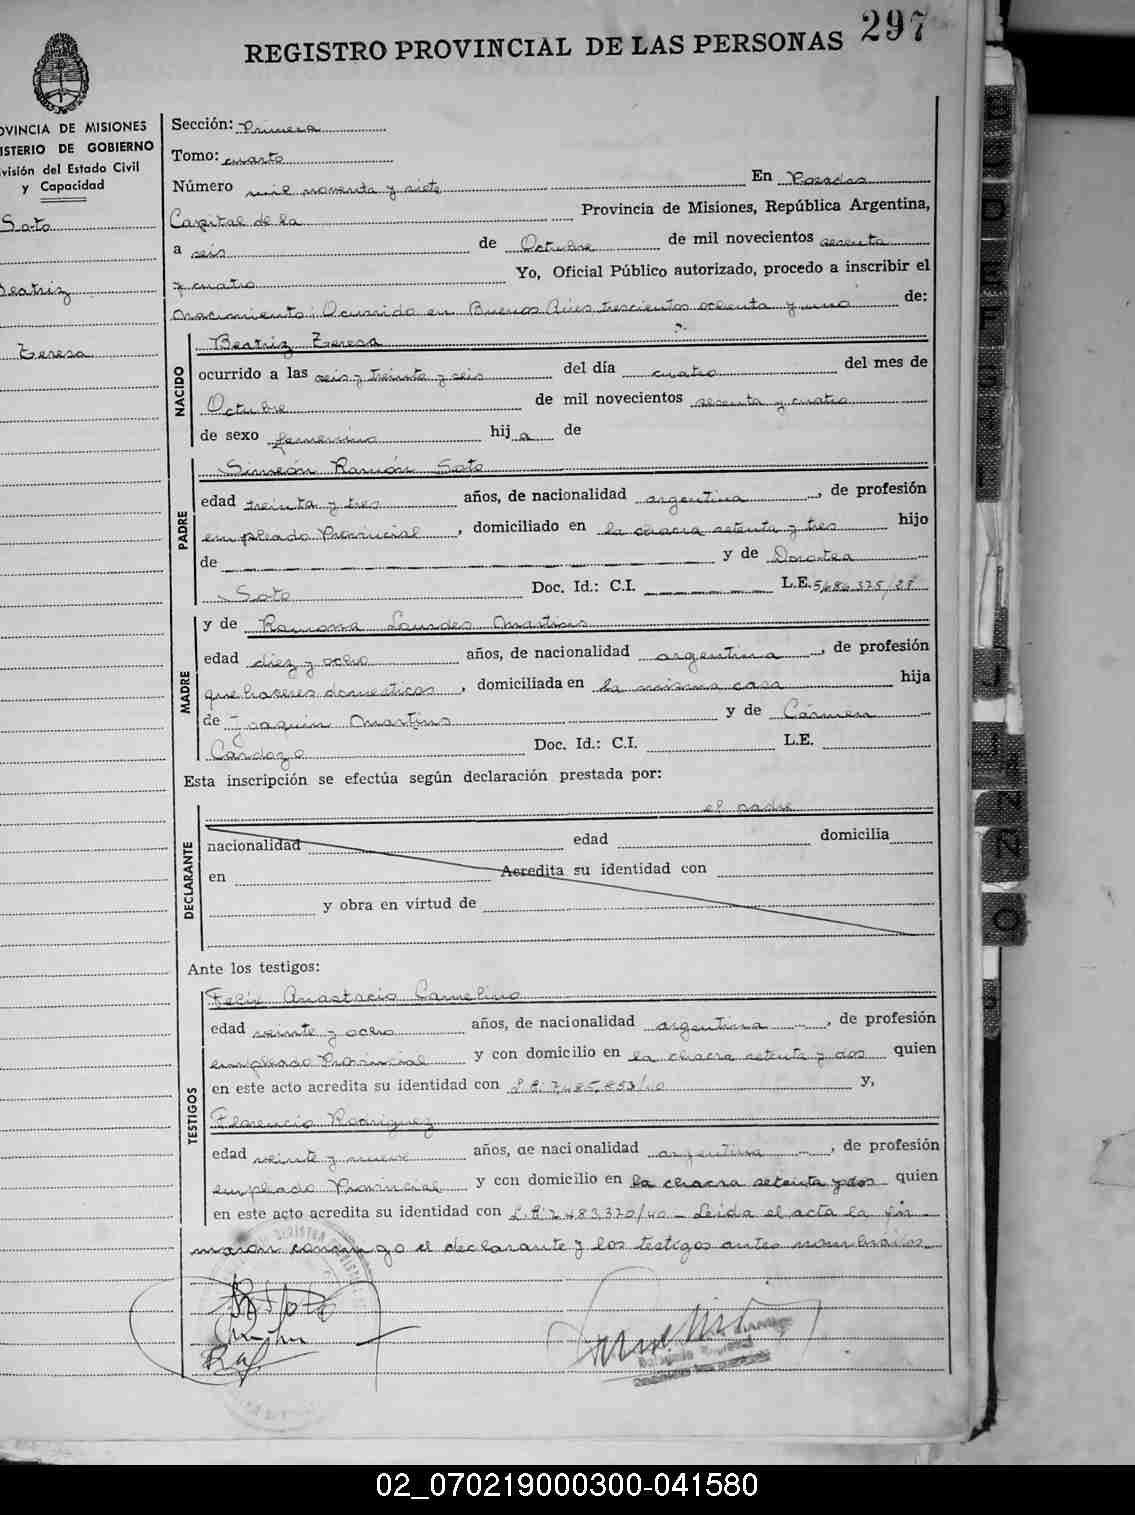 297
REGISTRO PROVINCIAL DE LAS PERSONAS
OVINCIA DE MISIONES
ISTERIO DE GOBIERNO
visión del Estado Civil
y Capacidad
Soto
Beatriz
Teresa
Sección: Primera
Tomo: cuarto
Número mil noventa y siete En Posadas
Capital de la Provincia de Misiones, República Argentina,
a seis de Octubre de mil novecientos sesenta
y cuatro Yo, Oficial Público autorizado, procedo a inscribir el
nacimiento: Ocurrido en Buenos Aires trescientos ochenta y uno de:
NACIDO
Beatriz Teresa
ocurrido a las seis y treinta y seis del día cuatro del mes de
Octubre de mil novecientos sesenta y cuatro
de sexo femenino hij a de
PADRE
Simeón Ramón Soto
edad treinta y tres años, de nacionalidad argentina, de profesión
empleado Provincial, domiciliado en la chacra setenta y tres hijo
de y de Dorotea
Soto Doc. Id.: C.I. L.E. 5.686.375/28
MADRE
y de Ramona Lourdes Martins
edad diez y ocho años, de nacionalidad argentina, de profesión
quehaceres domesticos, domiciliada en la misma casa hija
de Joaquin Martins y de Cármen
Cardozo Doc. Id.: C.I. L.E.
Esta inscripción se efectúa según declaración prestada por:
el padre
DECLARANTE
nacionalidad edad domicilia
en Acredita su identidad con
y obra en virtud de
Ante los testigos:
TESTIGOS
Felix Anastacio Camelino
edad veinte y ocho años, de nacionalidad argentina, de profesión
empleado Provincial y con domicilio en la chacra setenta y dos quien
en este acto acredita su identidad con L.E: 7.485.853/40 y,
Florencio Rodriguez
edad veinte y nueve años, de nacionalidad argentina, de profesión
empleado Provincial y con domicilio en la chacra setenta y dos quien
en este acto acredita su identidad con L.E: 2483.370/40 - Leida el acta la fir
maron conmigo el declarante y los testigos antes nombrados
02_070219000300-041580